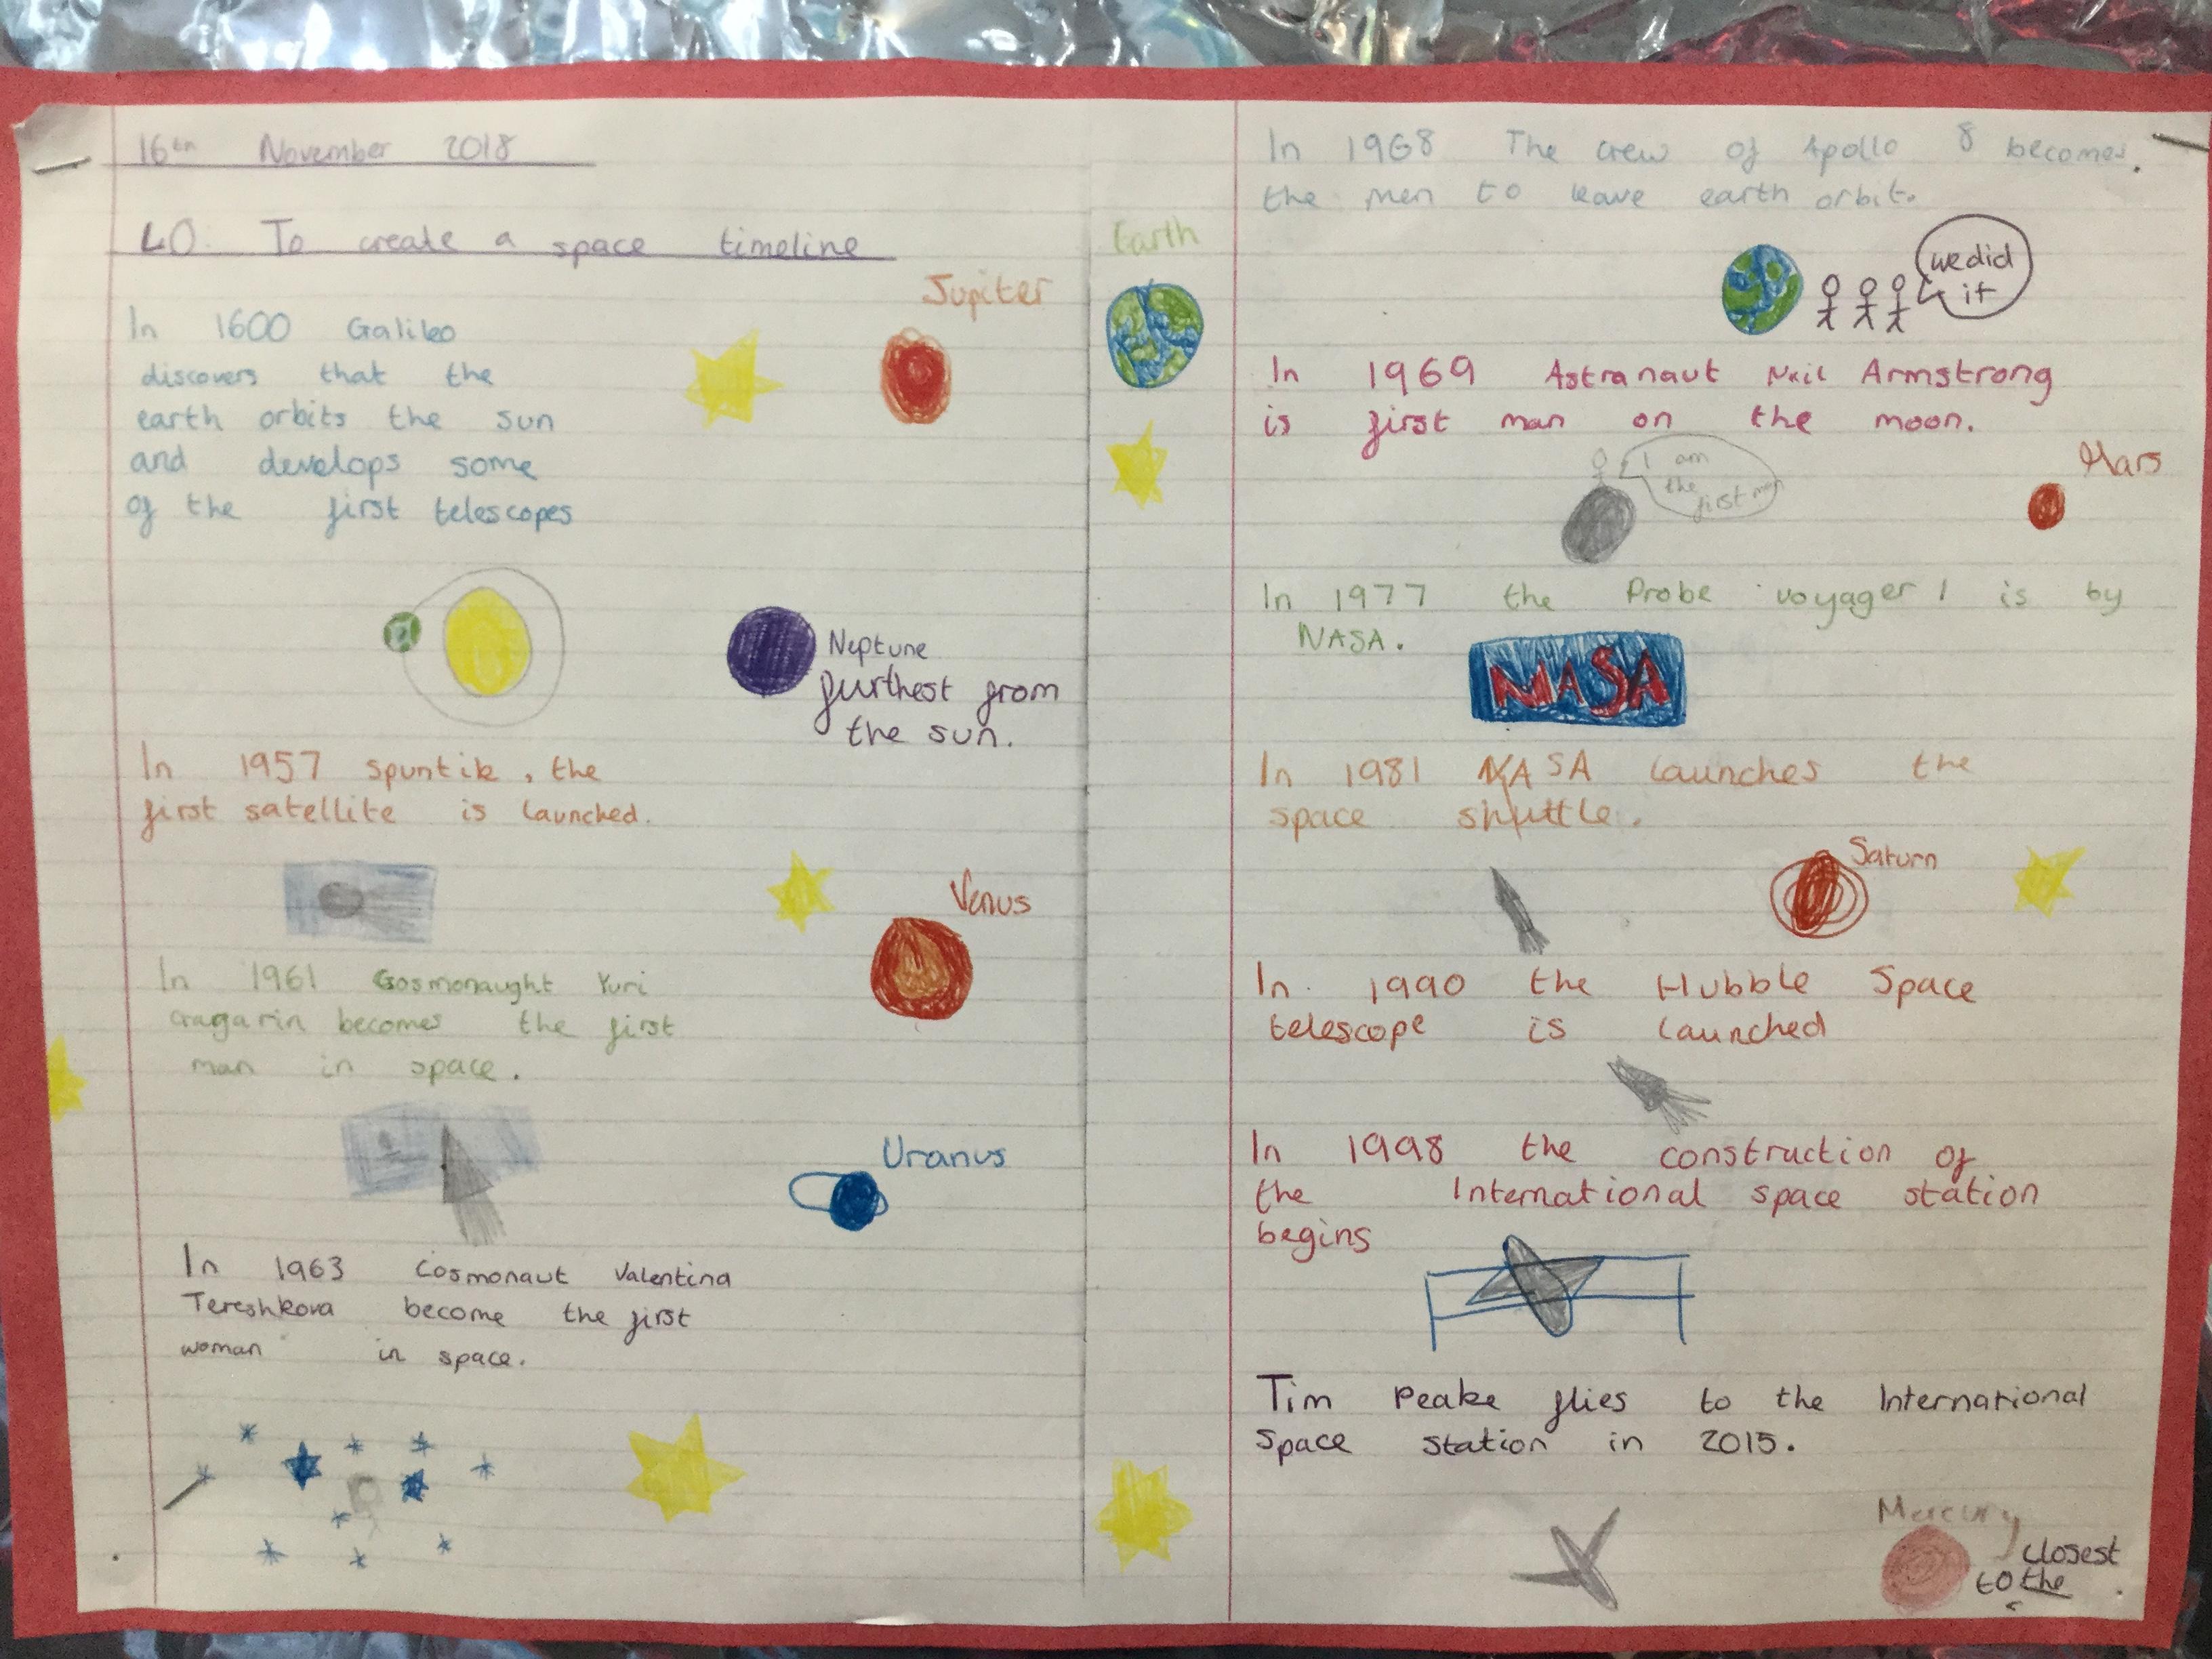 16th November 2018
LO: To create a space timeline
In 1600 Galileo
discovers that the
earth orbits the sun
and develops some
of the first telescopes
Jupiter
Earth
Neptune
furthest from
the sun.
In 1957 spuntik, the
first satellite is launched.
Venus
In 1961 Cosmonaught Yuri
Gagarin becomes the first
man in space.
Uranus
In 1963 Cosmonaut Valentina
Tereshkova become the first
woman in space.
In 1968 The crew of Apollo 8 becomes
the men to leave earth orbit.
we did
it
In 1969 Astranaut Neil Armstrong
is first man on the moon.
I am
the
first man
Mars
In 1977 the Probe voyager 1 is by
NASA.
NASA
In 1981 NASA launches the
space shuttle.
Saturn
In 1990 the Hubble Space
telescope is launched
In 1998 the construction of
the International space station
begins
Tim Peake flies to the International
space station in 2015.
Mercury
closest
to the